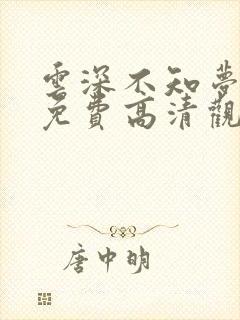 雲深不知夢
免費高清觀
唐中明